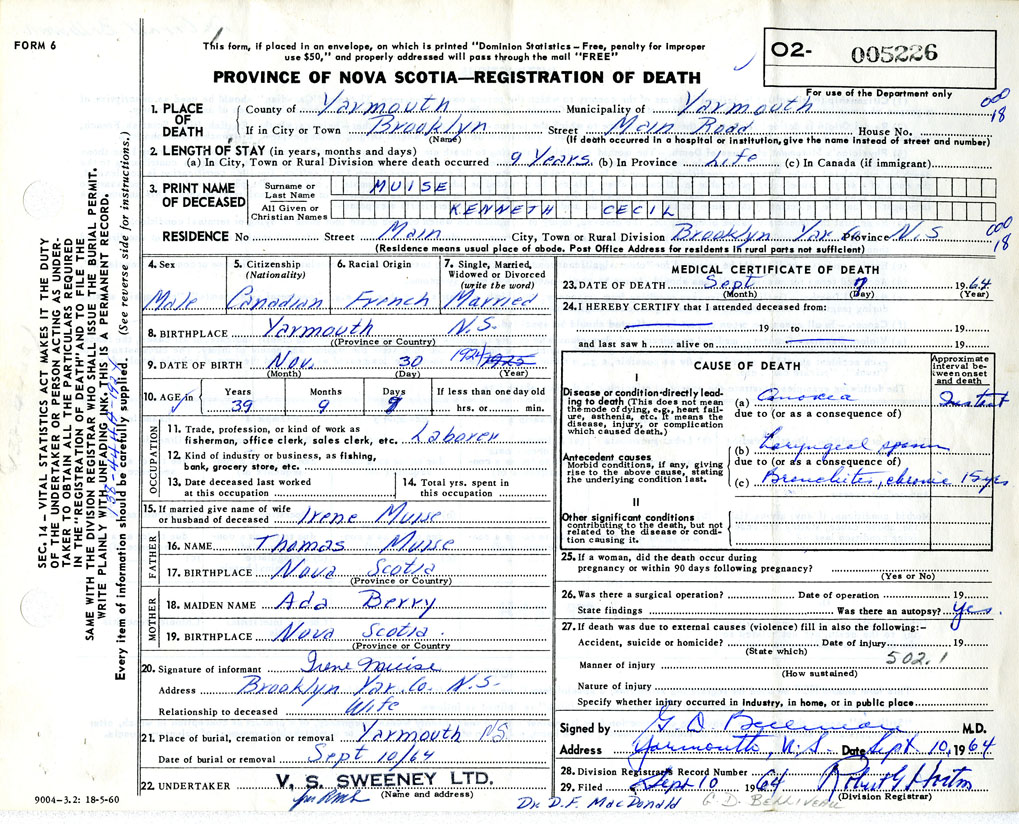 FORM 6
This form, if placed in an envelope, on which is printed "Dominion Statistics – Free, penalty for improper
use $50," and properly addressed will pass through the mail "FREE"
PROVINCE OF NOVA SCOTIA—REGISTRATION OF DEATH
O2- 005226
For use of the Department only
000
18
1. PLACE OF DEATH
County of Yarmouth Municipality of Yarmouth
If in City or Town Brooklyn Street Main Road House No.
(Name) (If death occurred in a hospital or institution, give the name instead of street and number)
2. LENGTH OF STAY (in years, months and days)
(a) In City, Town or Rural Division where death occurred 9 Years. (b) In Province Life (c) In Canada (if immigrant)
3. PRINT NAME OF DECEASED
Surname or Last Name MUISE
All Given or Christian Names KENNETH CECIL
RESIDENCE No Street Main City, Town or Rural Division Brooklyn Yar Co Province N.S
000
18
(Residence means usual place of abode. Post Office Address for residents in rural parts not sufficient)
4. Sex
Male
5. Citizenship
(Nationality)
Canadian
6. Racial Origin
French
7. Single, Married,
Widowed or Divorced
(write the word)
Married
8. BIRTHPLACE Yarmouth N.S.
(Province or Country)
9. DATE OF BIRTH Nov. 30 1924 1925
(Month) (Day) (Year)
10. AGE in
Years Months Days If less than one day old
39 9 hrs. or min.
OCCUPATION
11. Trade, profession, or kind of work as
fisherman, office clerk, sales clerk, etc. Laborer
12. Kind of industry or business, as fishing,
bank, grocery store, etc.
13. Date deceased last worked
at this occupation
14. Total yrs. spent in
this occupation
15. If married give name of wife
or husband of deceased Irene Muise
FATHER
16. NAME Thomas Muise
17. BIRTHPLACE Nova Scotia
(Province or Country)
MOTHER
18. MAIDEN NAME Ada Berry
19. BIRTHPLACE Nova Scotia.
(Province or Country
20. Signature of informant Irene Muise
Address Brooklyn Yar. Co. N.S.
Relationship to deceased Wife
21. Place of burial, cremation or removal Yarmouth NS
Date of burial or removal Sept 10/64
22. UNDERTAKER V. S. SWEENEY LTD.
(Name and address)
9004–3.2: 18-5-60
MEDICAL CERTIFICATE OF DEATH
23. DATE OF DEATH Sept 7 1964
(Month) (Day) (Year)
24. I HEREBY CERTIFY that I attended deceased from:
19 to 19
and last saw h alive on 19
CAUSE OF DEATH
Approximate
interval be-
tween onset
and death
I
Disease or condition directly lead-
ing to death (This does not mean
the mode of dying, e.g., heart fail-
ure, asthenia, etc. It means the
disease, injury, or complication
which caused death.)
(a)
due to (or as a consequence of)
Antecedent causes
Morbid conditions, if any, giving
rise to the above cause, stating
the underlying condition last.
(b) Laryngeal spasm
due to (or as a consequence of)
(c) Bronchitis, chronic 15 yrs
II
Other significant conditions
contributing to the death, but not
related to the disease or condi-
tion causing it.
25. If a woman, did the death occur during
pregnancy or within 90 days following pregnancy?
(Yes or No)
26. Was there a surgical operation? Date of operation 19
State findings Was there an autopsy? Yes.
27. If death was due to external causes (violence) fill in also the following:–
Accident, suicide or homicide? Date of injury 19
(State which)
502.1
Manner of injury
(How sustained)
Nature of injury
Specify whether injury occurred in Industry, in home, or in public place
Signed by G. D. M.D.
Address Yarmouth, N.S. Date Sept 10, 1964
28. Division Registrar's Record Number
29. Filed Sept 10 1964 Robert G Horton
(Division Registrar)
Dr. D. F. MacDonald G. D. BELLIVEAU
SEC. 14 – VITAL STATISTICS ACT MAKES IT THE DUTY
OF THE UNDERTAKER OR PERSON ACTING AS UNDER-
TAKER TO OBTAIN ALL THE PARTICULARS REQUIRED
IN THE "REGISTRATION OF DEATH" AND TO FILE THE
SAME WITH THE DIVISION REGISTRAR WHO SHALL ISSUE THE BURIAL PERMIT.
WRITE PLAINLY WITH UNFADING INK. THIS IS A PERMANENT RECORD.
Every item of information should be carefully supplied. (See reverse side for instructions.)